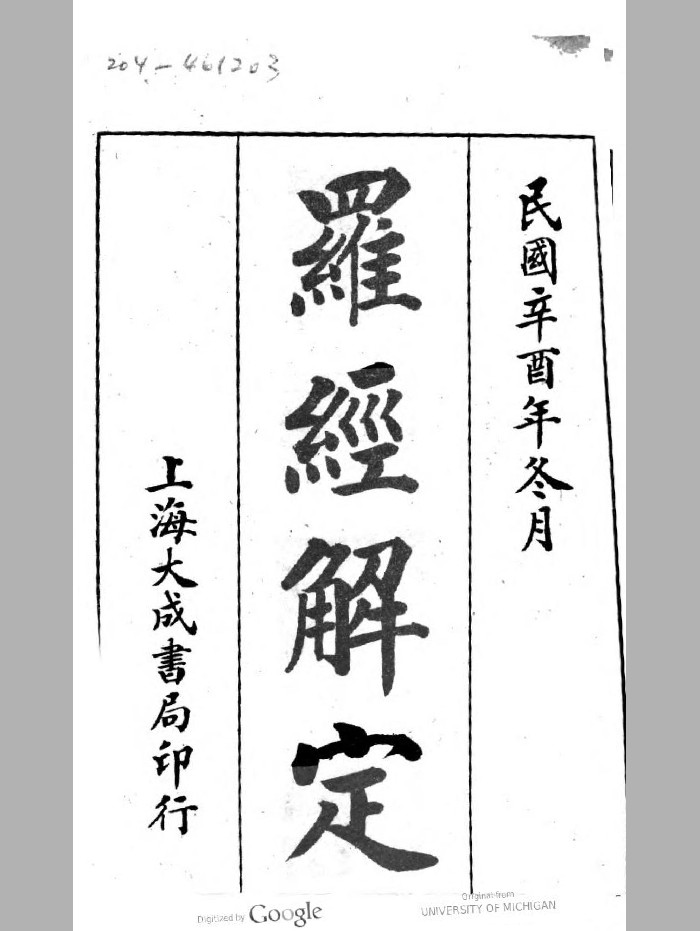 204-461203
民國辛酉年冬月
羅經解定
上海大成書局印行
Digitized by Google
Original from
UNIVERSITY OF MICHIGAN